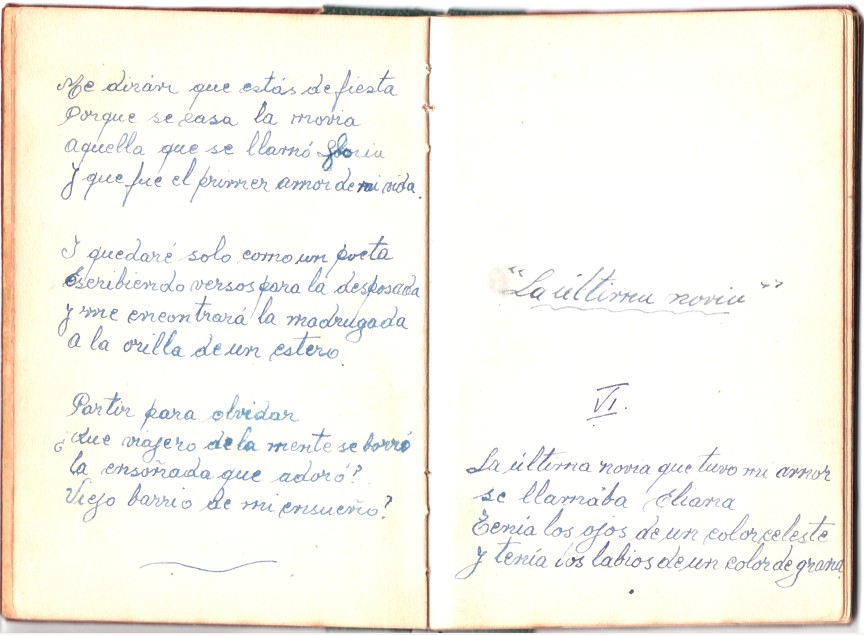 Me dirán que estás de fiesta
Porque se casa la novia
aquella que se llamó Gloria
y que fue el primer amor de mi vida.
I quedaré solo como un poeta
Escribiendo versos para la desposada
y me encontrará la madrugada
a la orilla de un estero.
Partir para olvidar
¿Que viajero de la mente se borró
la ensoñada que adoró?
Viejo barrio de mi ensueño?
"La última novia"
VI.
La última novia que tuvo mi amor
se llamába Eliana
Tenía los ojos de un color celeste
y tenía los labios de un color de grana